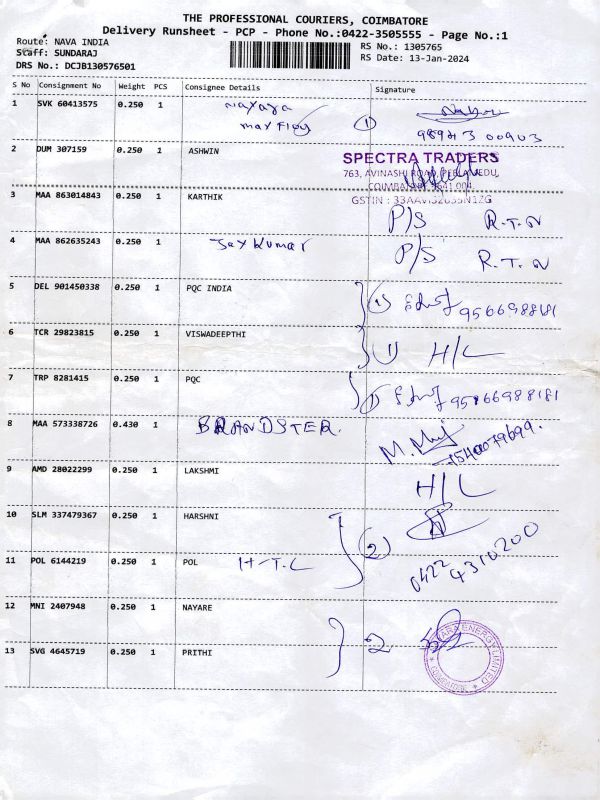 THE PROFESSIONAL COURIERS, COIMBATORE
Delivery Runsheet - PCP - Phone No.:0422-3505555 - Page No.:1
Route: NAVA INDIA
RS No.: 1305765
Staff: SUNDARAJ
RS Date: 13-Jan-2024
DRS No.: DCJB130576501
S No Consignment No Weight PCS Consignee Details Signature
1 SVK 60413575 0.250 1 Nayara
max Flow ①
98943 00903
2 DUM 307159 0.250 1 ASHWIN
SPECTRA TRADERS
763, AVINASHI ROAD, PEELAMEDU,
COIMBATORE - 641 004.
GSTIN : 33AAVI32635N1ZG
3 MAA 863014843 0.250 1 KARTHIK P/S R.T.N
4 MAA 862635243 0.250 1 Jaykumar P/S R.T.N
5 DEL 901450338 0.250 1 PQC INDIA ① 9566988181
6 TCR 29823815 0.250 1 VISWADEEPTHI 1) H/L
7 TRP 8281415 0.250 1 PQC ① 9566988181
8 MAA 573338726 0.430 1 BRANDSTER.
9 AMD 28022299 0.250 1 LAKSHMI H/L
10 SLM 337479367 0.250 1 HARSHNI ②
11 POL 6144219 0.250 1 POL H-T.L 0422 4310200
12 MNI 2407948 0.250 1 NAYARE
2
13 SVG 4645719 0.250 1 PRITHI
NAYARA ENERGY LIMITED
COIMBATORE